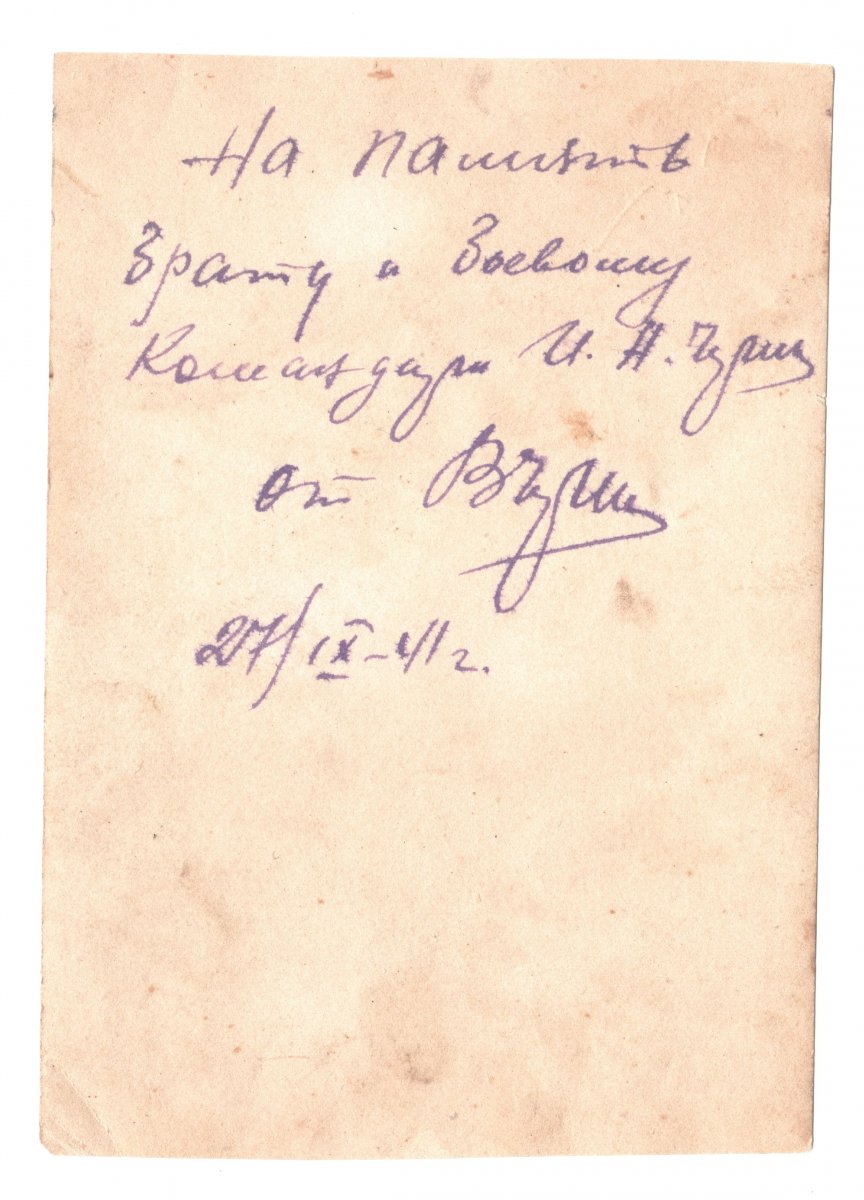 На память
Брату и Боевому
Командиру И. Н.
от
27/IX-41 г.